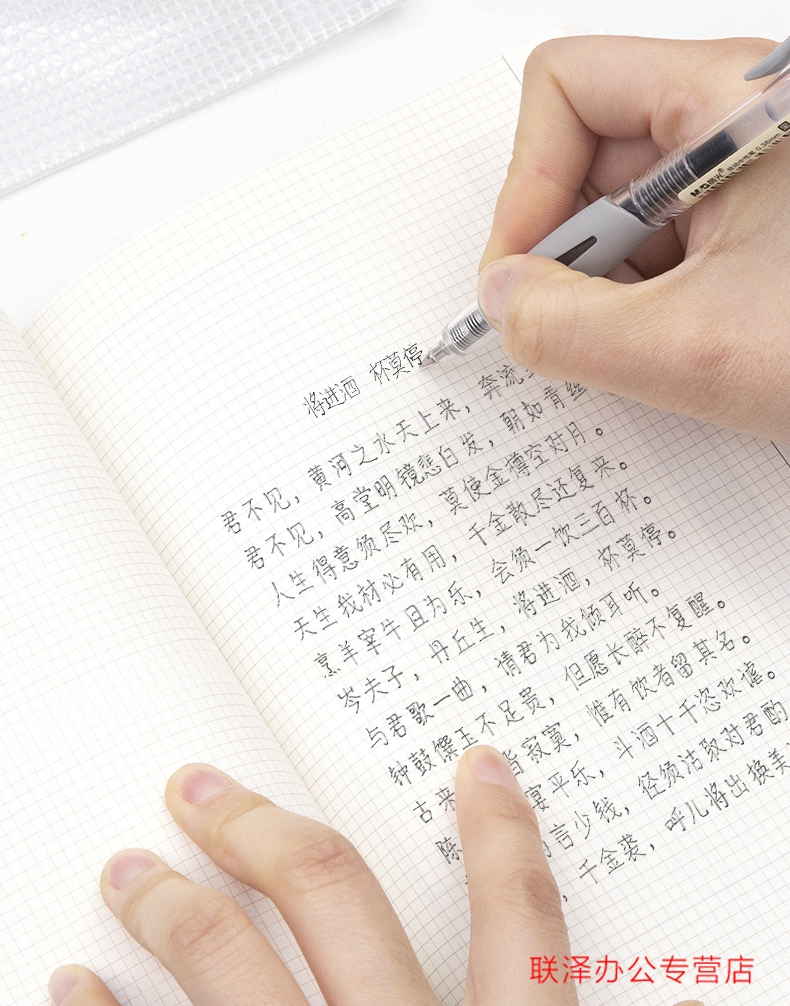 将进酒 杯莫停
君不见，黄河之水天上来，奔流
君不见，高堂明镜悲白发，朝如青丝
人生得意须尽欢，莫使金樽空对月。
天生我材必有用，千金散尽还复来。
烹羊宰牛且为乐，会须一饮三百杯。
岑夫子，丹丘生，将进酒，杯莫停。
与君歌一曲，请君为我倾耳听。
钟鼓馔玉不足贵，但愿长醉不复醒。
古来 皆寂寞，惟有饮者留其名。
陈 宴平乐，斗酒十千恣欢谑。
言少钱，径须沽取对君酌
，千金裘，呼儿将出换美
M&G晨光® 0.38mm
联泽办公专营店